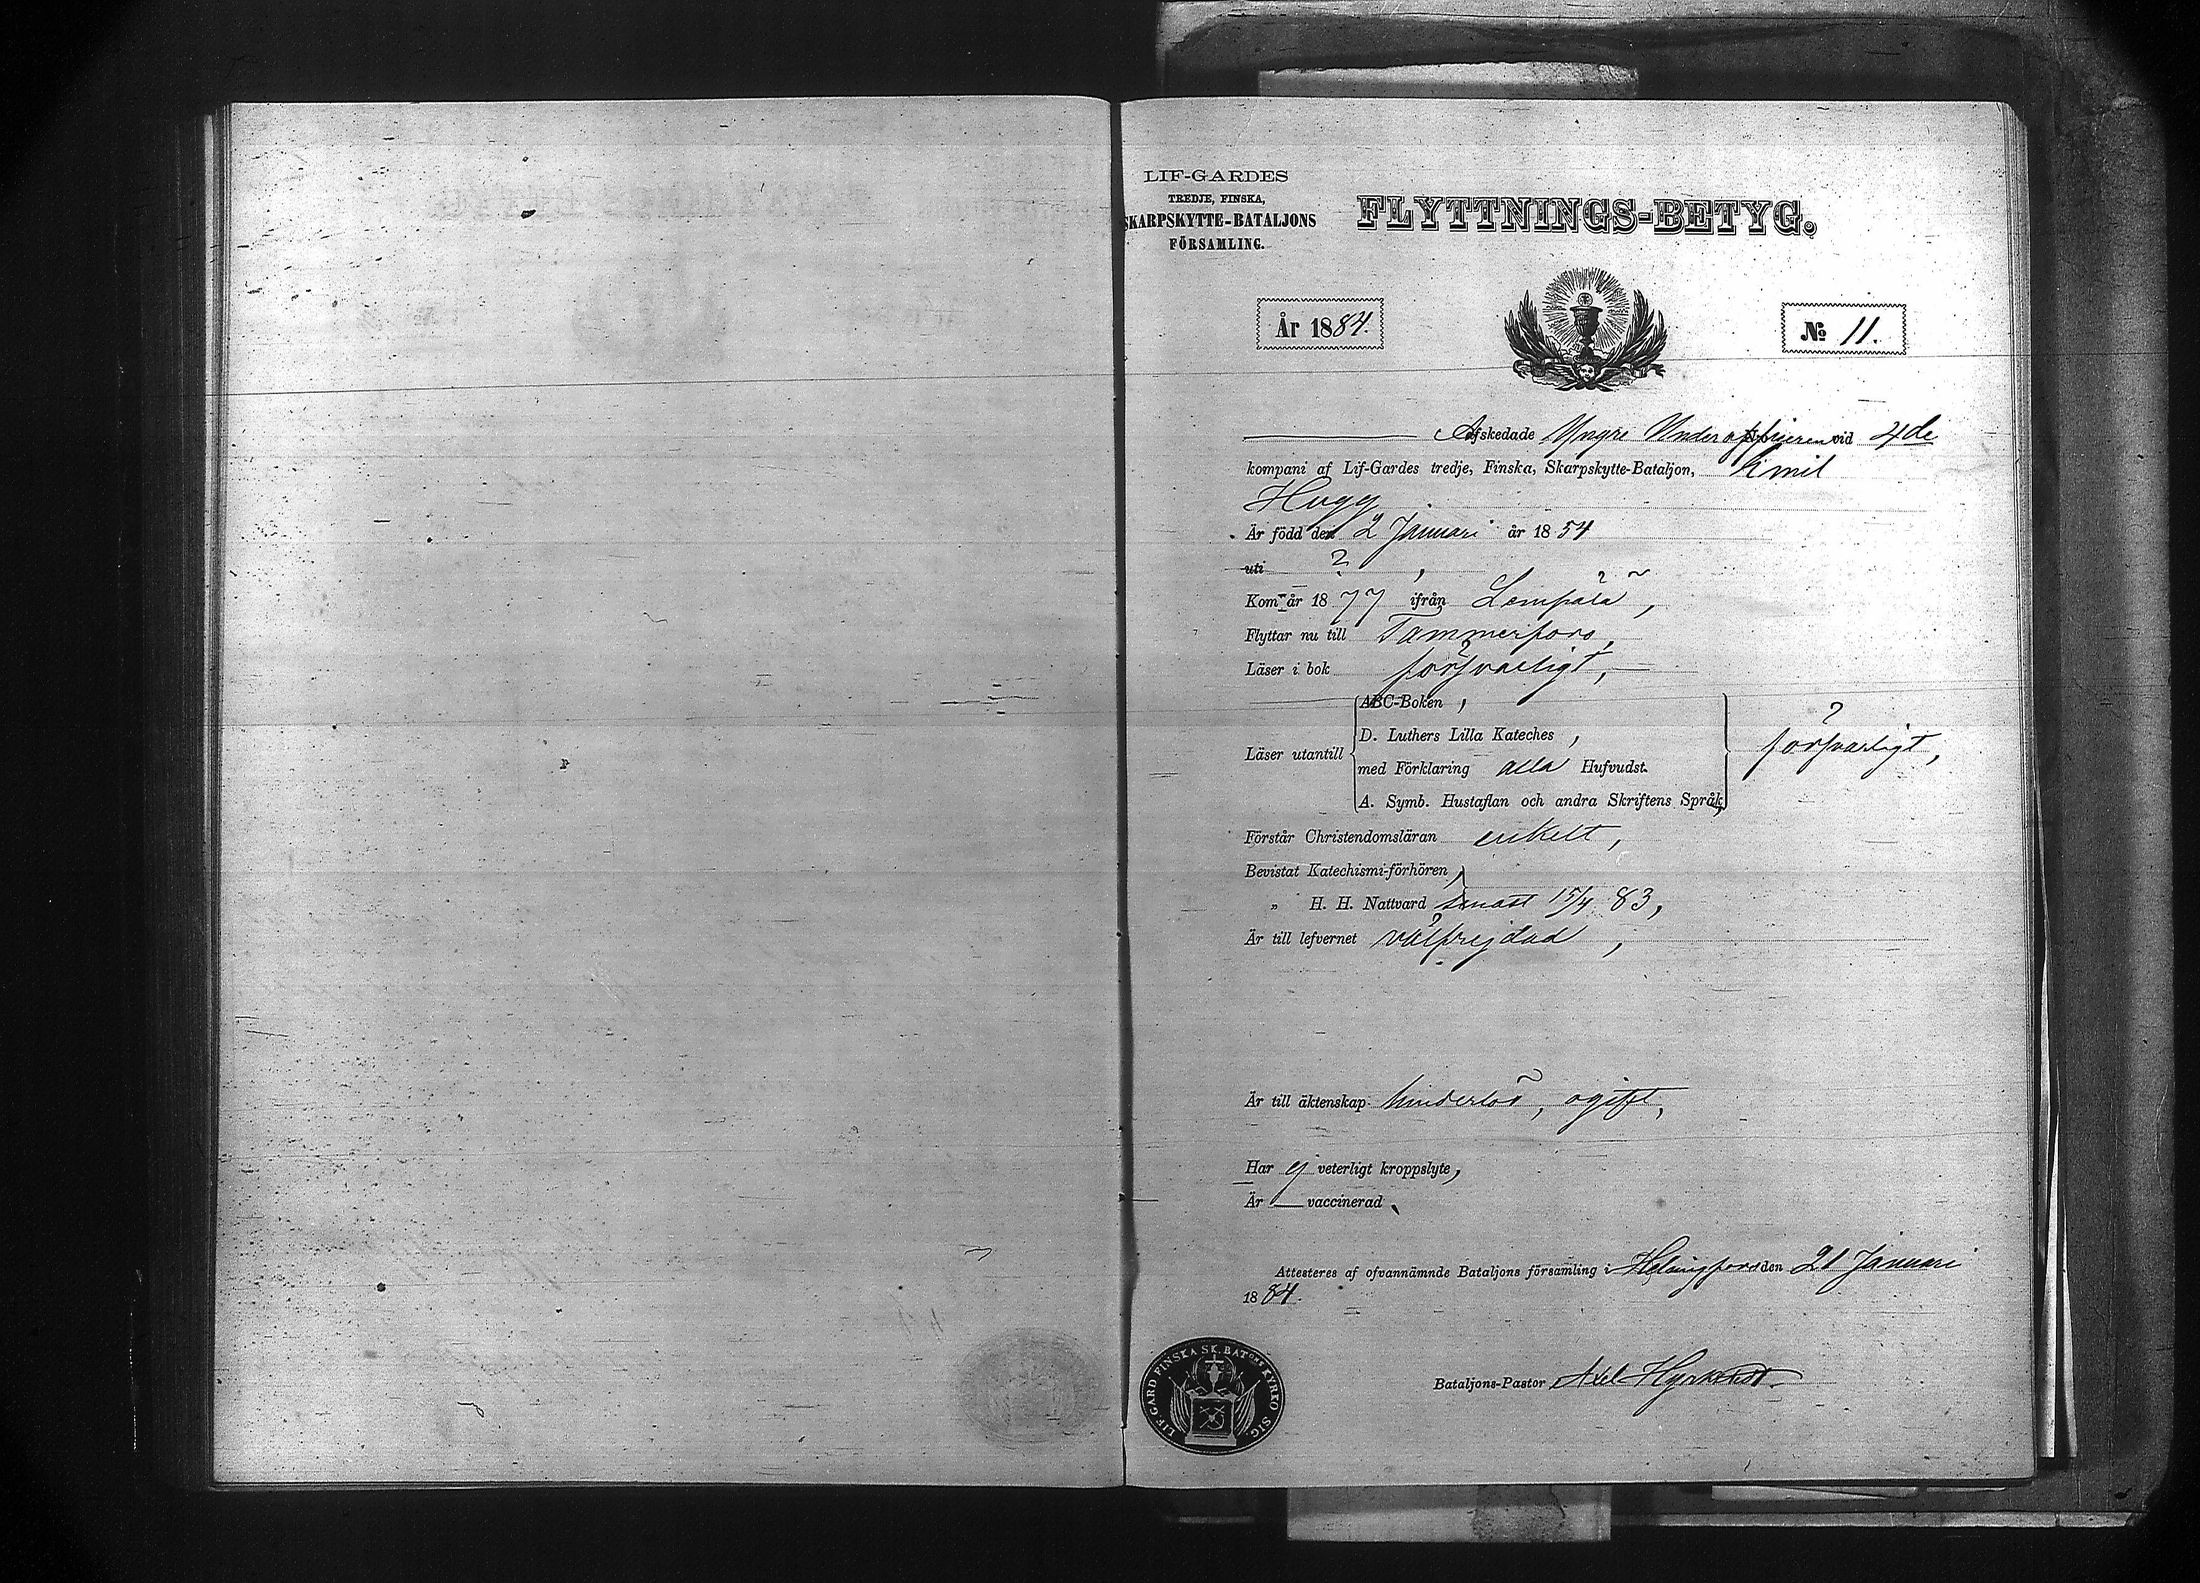 LIF-GARDES
TREDJE, FINSKA,
SKARPSKYTTE-BATALJONS
FÖRSAMLING.
FLYTTNINGS-BETYG.
År 1884.
№ 11.
Afskedade Yngre Underofficeren vid 4de
kompani af Lif-Gardes tredje, Finska, Skarpskytte-Bataljon, Emil
Hugg
Är född den 2 Januari år 1854
uti ?,
Kom år 1877 ifrån Lempäla,
Flyttar nu till Tammerfors,
Läser i bok försvarligt,
Läser utantill
ABC-Boken,
D. Luthers Lilla Kateches,
med Förklaring alla Hufvudst.
A. Symb. Hustaflan och andra Skriftens Språk,
försvarligt,
Förstår Christendomsläran enkelt,
Bevistat Katechismi-förhören,
„ H. H. Nattvard senast 15/4 83,
Är till lefvernet välfrejdad,
Är till äktenskap hinderlös, ogift,
Har ej veterligt kroppslyte,
Är — vaccinerad.
Attesteres af ofvannämnde Bataljons församling i Helsingfors den 21 Januari
1884.
Bataljons-Pastor Axel
LIF GARD FINSKA SK. BATONS KYRKO SIG.